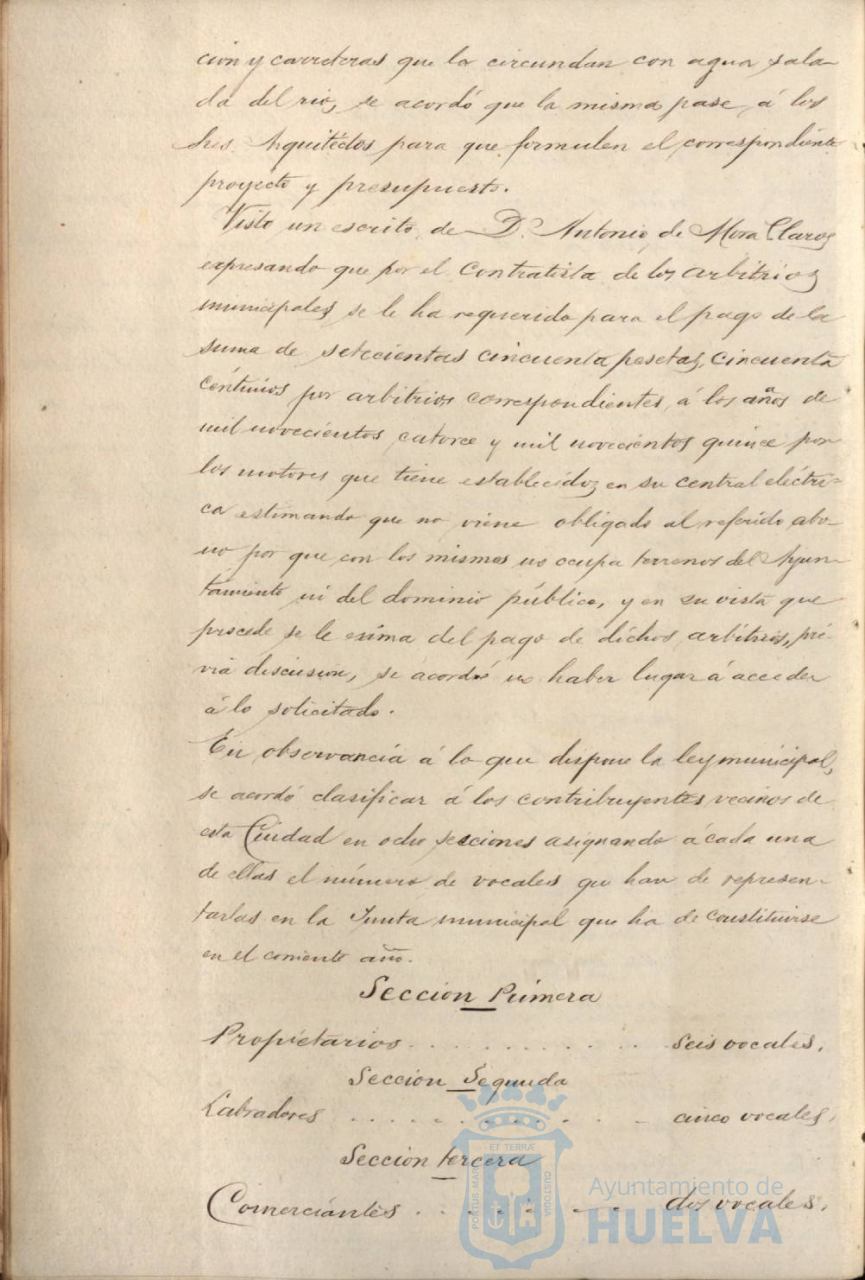 cion y carreteras que la circundan con agua sala-
da del rio, se acordó que la misma pase á los
Sres. Arquitéctos para que formulen el correspondiente
proyecto y presupuesto.
Visto un escrito de D. Antonio de Mora Claros
expresando que por el contratista de los arbitrios
municipales se le ha requerido para el pago de la
suma de setecientas cincuenta pesetas, cincuenta
céntimos por arbitrios correspondientes, á los años de
mil novecientos catorce y mil novecientos quince por
los motores que tiene establecidos en su central eléctri-
ca estimando que no viene obligado al referido abo-
no por que con los mismos no ocupa terrenos del Ayun-
tamiento ni del dominio público, y en su vista que
procede se le exima del pago de dichos arbitrios, pré-
via discusion, se acordó no haber lugar á acceder
á lo solicitado.
En observancia á lo que dispone la ley municipal,
se acordó clasificar á los contribuyentes vecinos de
esta Ciudad en ocho secciones asignando á cada una
de ellas el número de vocales que han de represen-
tarlas en la Junta municipal que ha de constituirse
en el corriente año.
Seccion Primera
Propietarios . . . . . . . . . seis vocales.
Seccion Segunda
Labradores . . . . . . . . . cinco vocales.
Seccion tercera
Comerciantes . . . . . . . . dos vocales.
PORTUS MARIS
ET TERRÆ
CUSTODIA
Ayuntamiento de
HUELVA